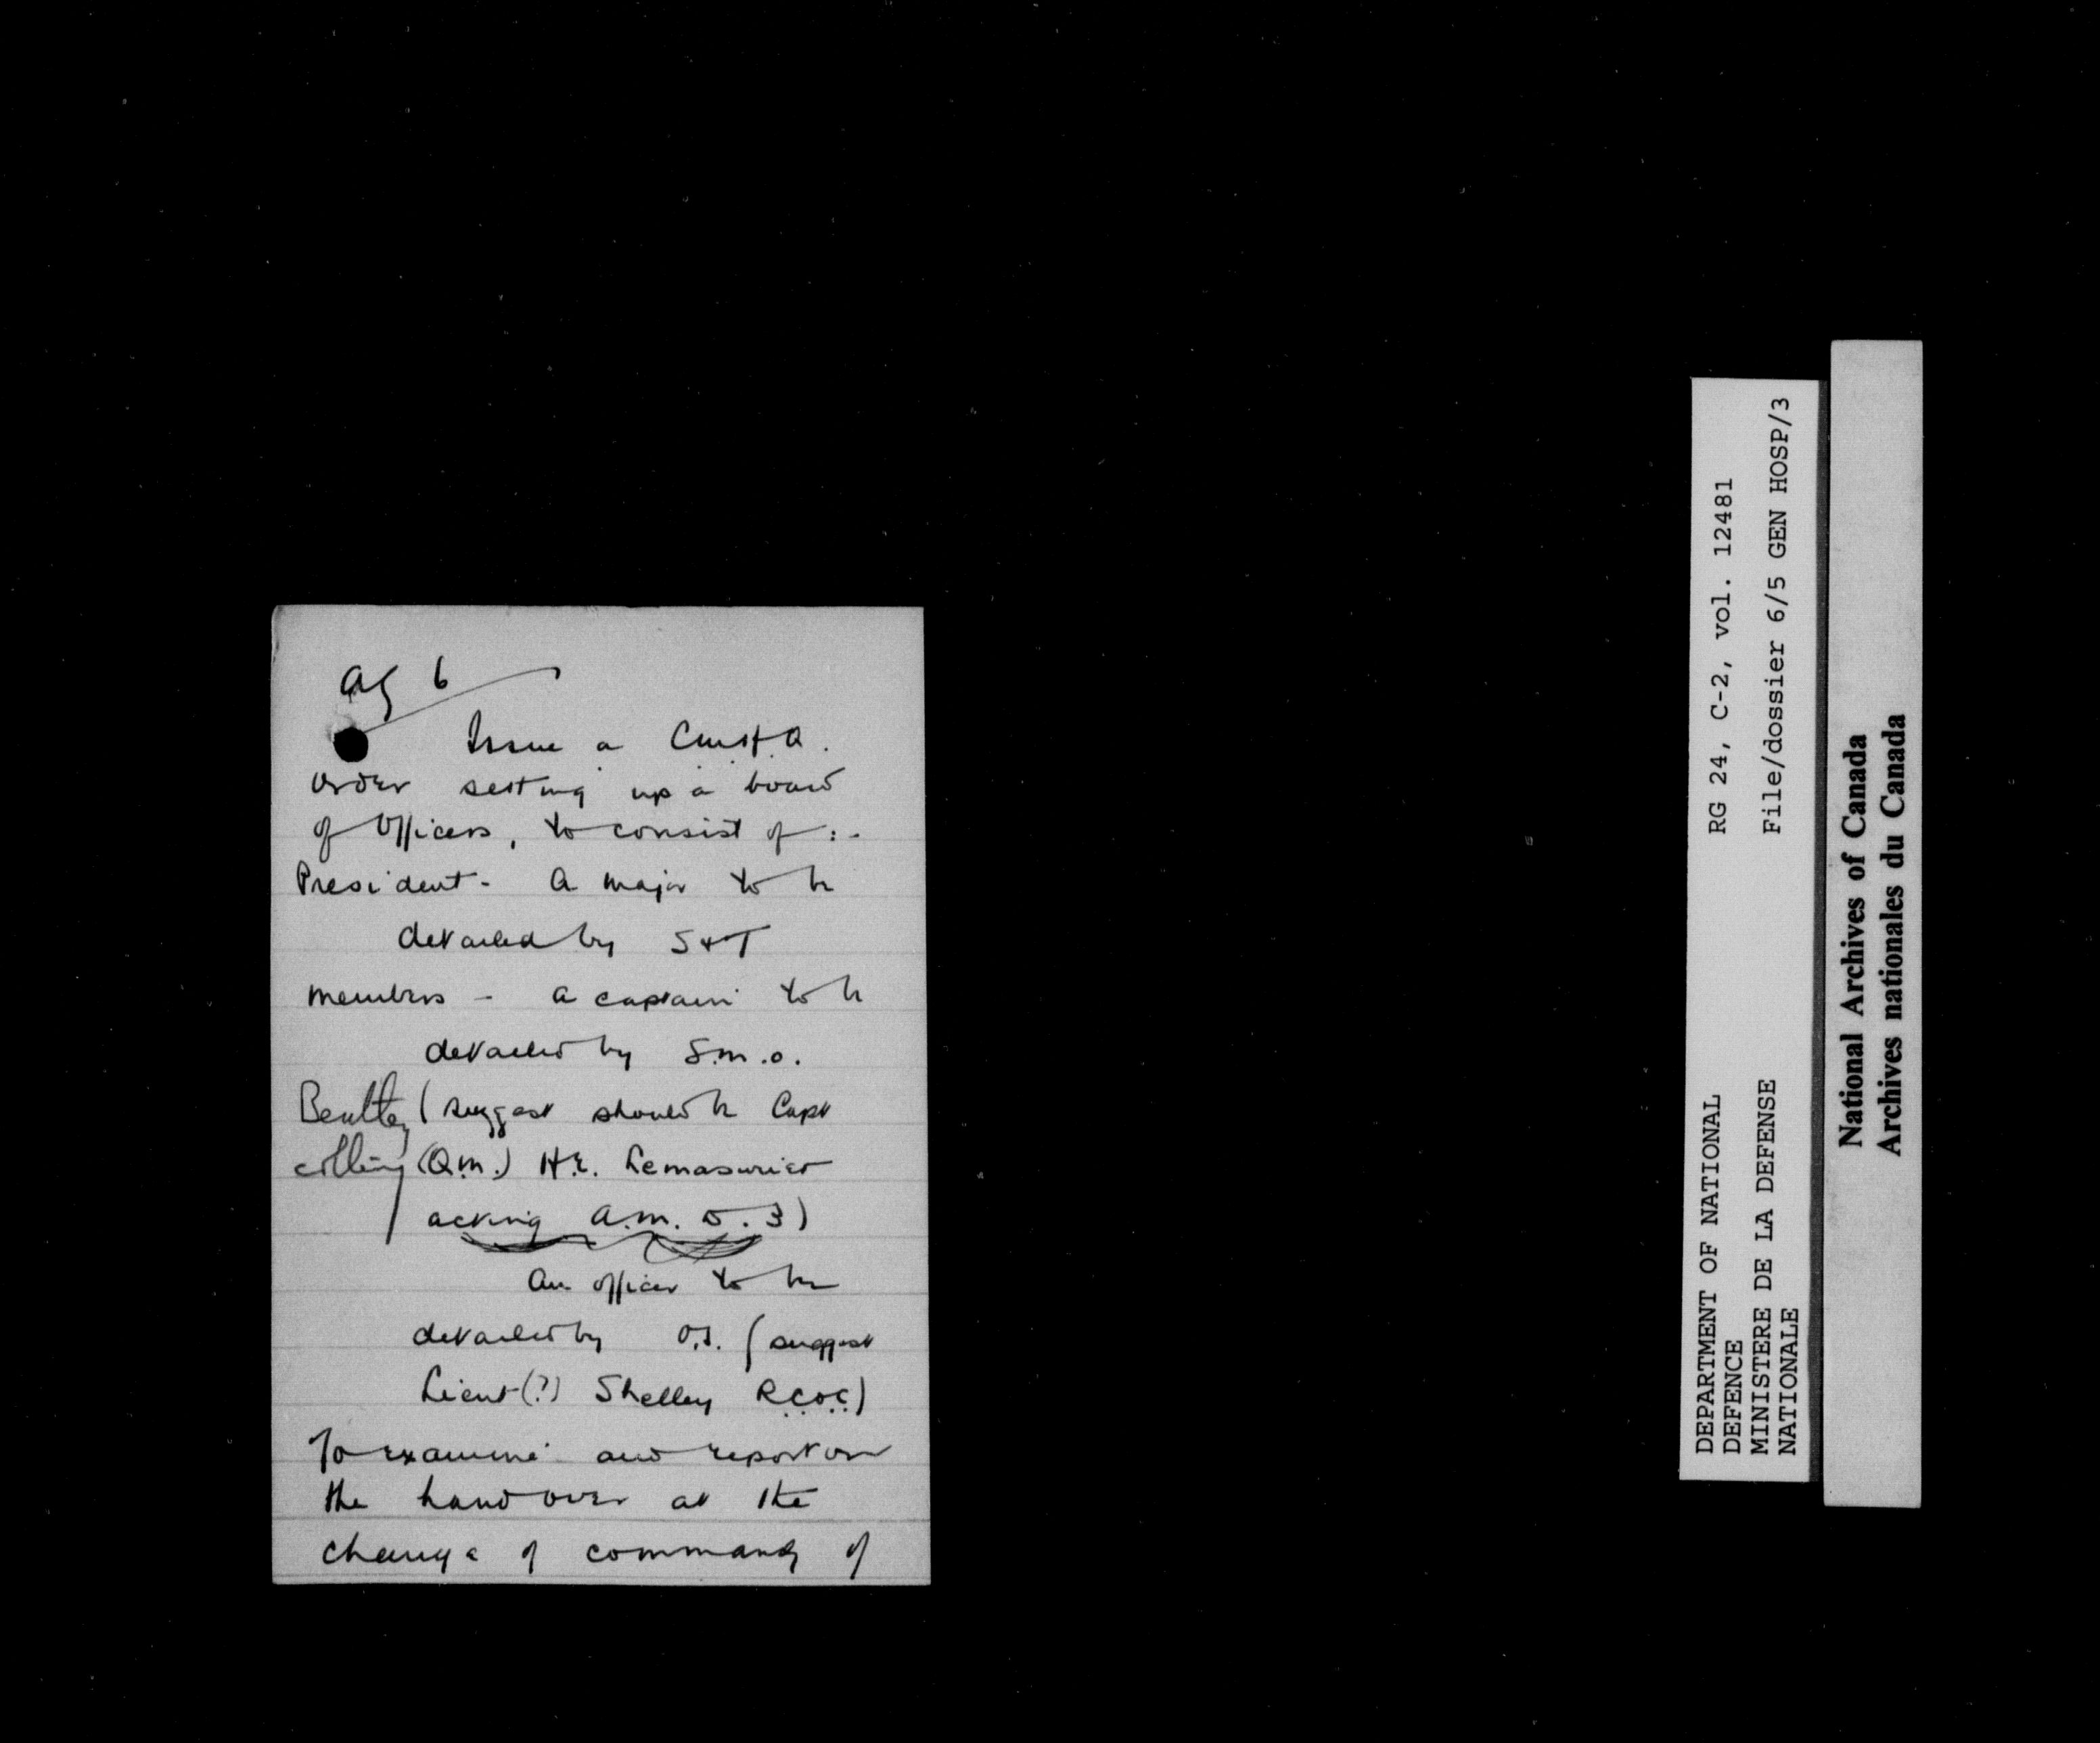 AG 6
Issue a CMHQ.
order setting up a board
of Officers, to consist of :-
President - A major to be
detailed by S & T
members - a captain to be
detailed by S.M.O.
(suggest should be Capt
(Q.M.) H.E. Lemasurier
acting A.M.D. 3)
An officer to be
detailed by O.S. (suggest
Lieut (?) Shelley RCOC)
To examine and report on
the hand over at the
change of command of
RG 24, C-2, vol. 12481
File/dossier 6/5 GEN HOSP/3
DEPARTMENT OF NATIONAL
DEFENCE
MINISTERE DE LA DEFENSE
NATIONALE
National Archives of Canada
Archives nationales du Canada